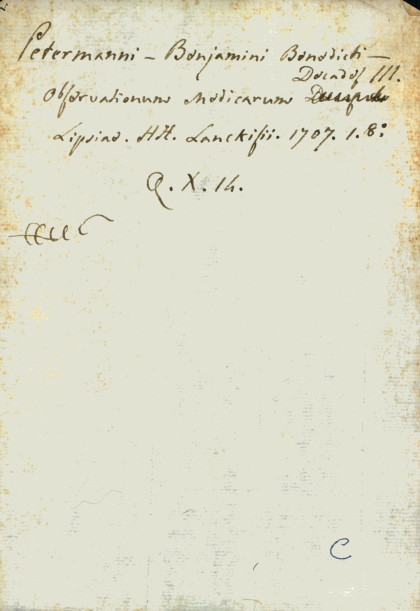 Petermanni - Benjamini Benedicti -
Decades III.
Observationum Medicarum
Lipsiae. Hæ. Lanckisii. 1707. 1. 8º
Q. X. 14.
C